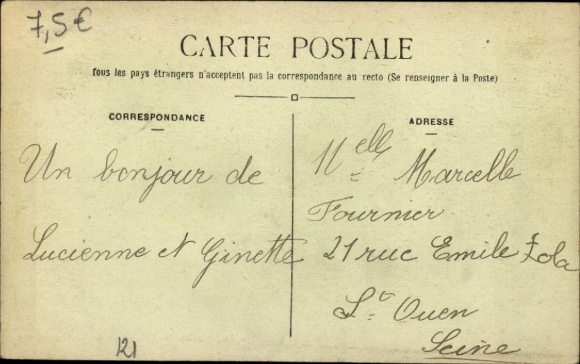 7,5€
CARTE POSTALE
Tous les pays étrangers n'acceptent pas la correspondance au recto (Se renseigner à la Poste)
CORRESPONDANCE
Un bonjour de
Lucienne et Ginette
121
ADRESSE
Melle Marcelle
Fournier
21 rue Emile Zola
St Ouen
Seine